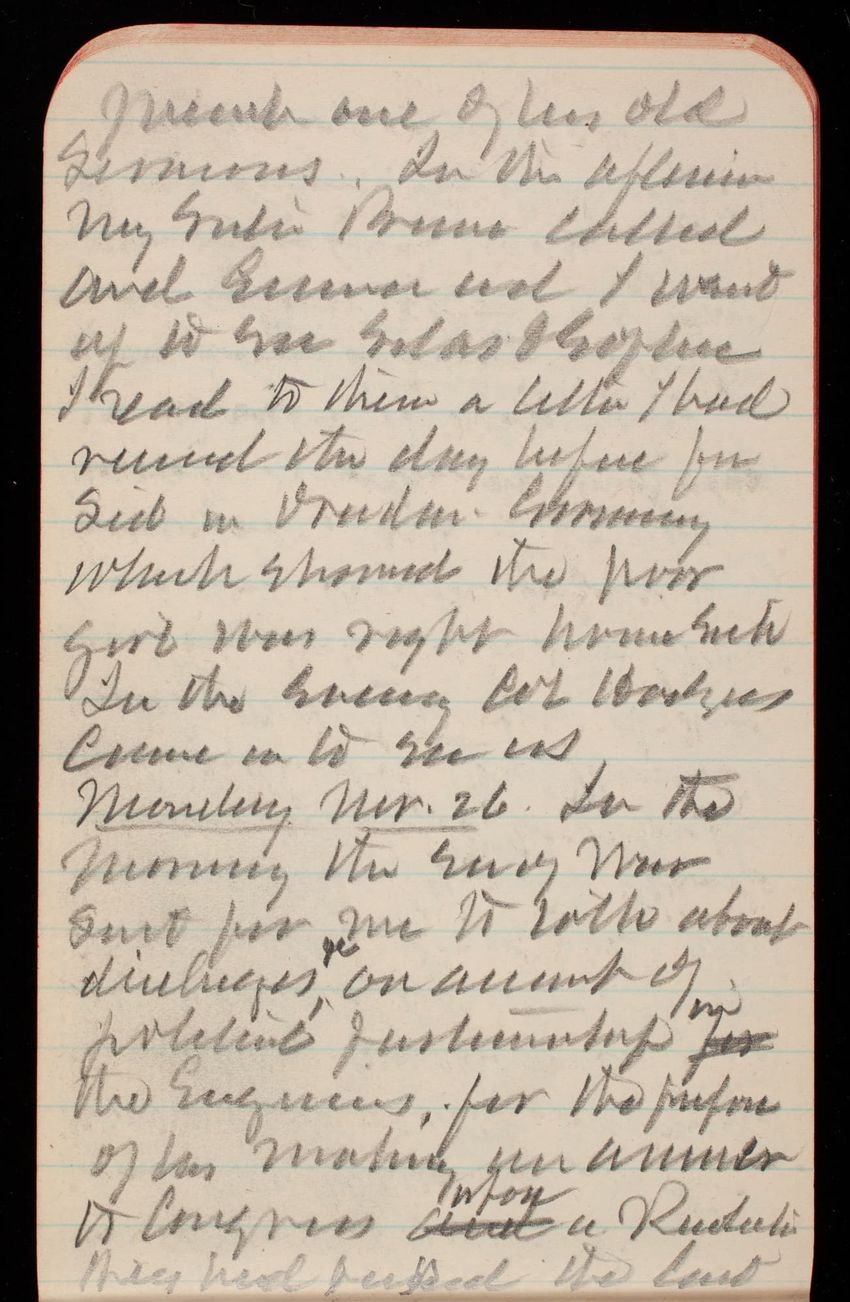 preach one of his old
Sermons. In the afternoon
Mrs Bruner called
and Emma and I went
up to see Silas & Sophie
I read to them a letter I had
received the day before from
Seib in Dresden Germany
which showed the poor
girl was right home sick
In the Evening Col Hodges
Came in to see us
Monday Nov. 26. In the
Morning the Secy War
Sent for me to talk about
discharges, on account of
political partisanship in for
the Engineers, for the purpose
of his making an answer
to Congress and upon a Resolution
they had passed the last